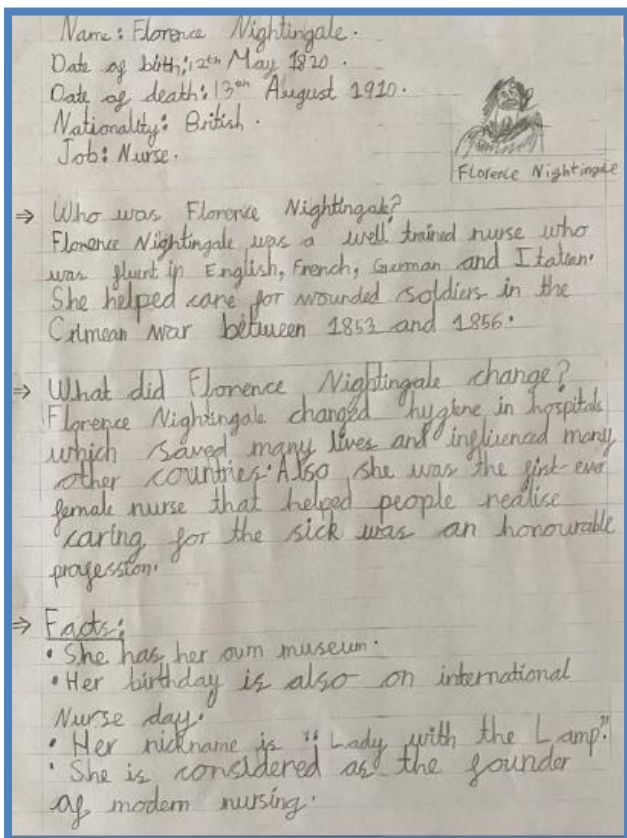 Name: Florence Nightingale.
Date of birth: 12th May 1820.
Date of death: 13th August 1910.
Nationality: British.
Job: Nurse.
Florence Nightingale
⇒ Who was Florence Nightingale?
Florence Nightingale was a well trained nurse who
was fluent in English, French, German and Italian.
She helped care for wounded soldiers in the
Crimean war between 1853 and 1856.
⇒ What did Florence Nightingale change?
Florence Nightingale changed hygiene in hospitals
which saved many lives and influenced many
other countries. Also, she was the first ever
female nurse that helped people realise
caring for the sick was an honourable
profession.
⇒ Facts:
• She has her own museum.
• Her birthday is also on international
Nurse day.
• Her nickname is "Lady with the Lamp".
• She is considered as the founder
of modern nursing.